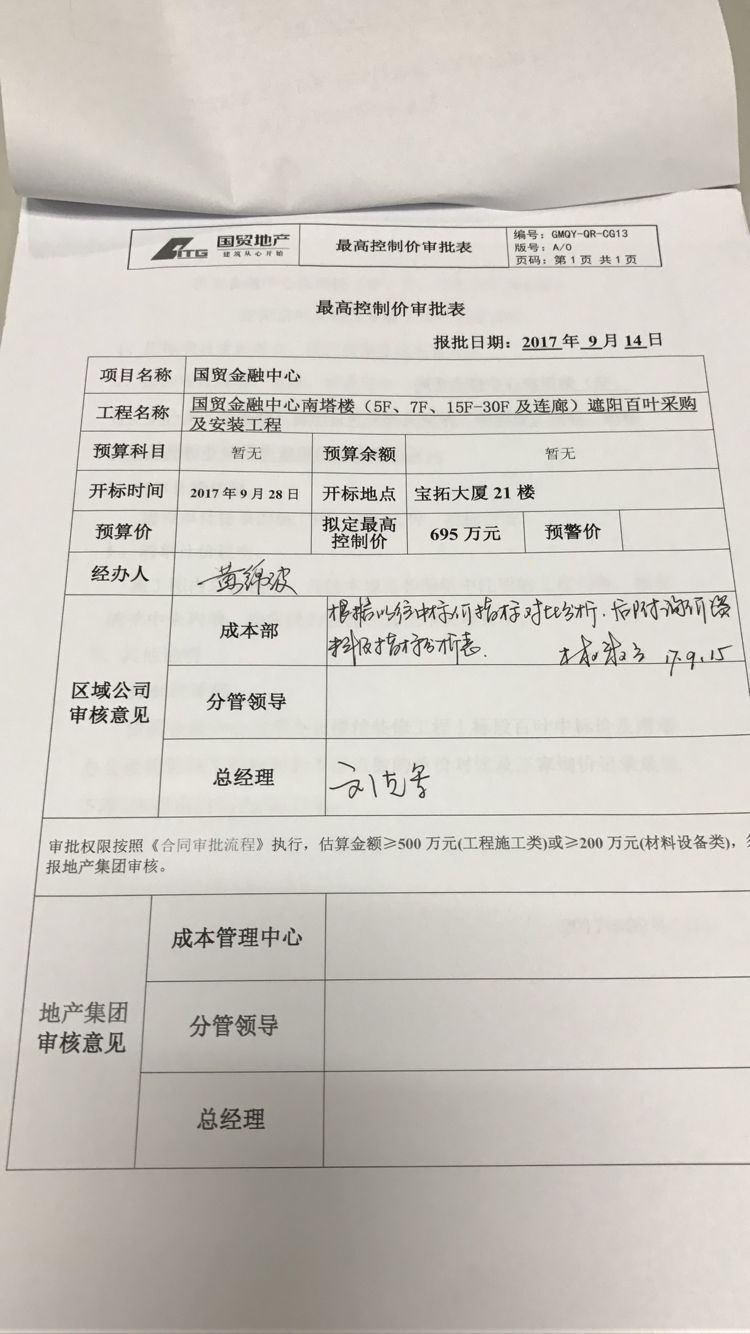 ITG 国贸地产
建筑从心开始
最高控制价审批表
编号：GMQY-QR-CG13
版号：A/0
页码：第1页 共1页
最高控制价审批表
报批日期：2017 年 9 月 14 日
项目名称 国贸金融中心
工程名称 国贸金融中心南塔楼（5F、7F、15F-30F 及连廊）遮阳百叶采购
及安装工程
预算科目 暂无 预算余额 暂无
开标时间 2017 年 9 月 28 日 开标地点 宝拓大厦 21 楼
预算价 拟定最高
控制价 695 万元 预警价
经办人 黄锦波
区域公司
审核意见
成本部 根据以往中标价指标对比分析，后附询价资
料及指标分析表。 17.9.15
分管领导
总经理
审批权限按照《合同审批流程》执行，估算金额≥500 万元(工程施工类)或≥200 万元(材料设备类)，
报地产集团审核。
地产集团
审核意见
成本管理中心
分管领导
总经理